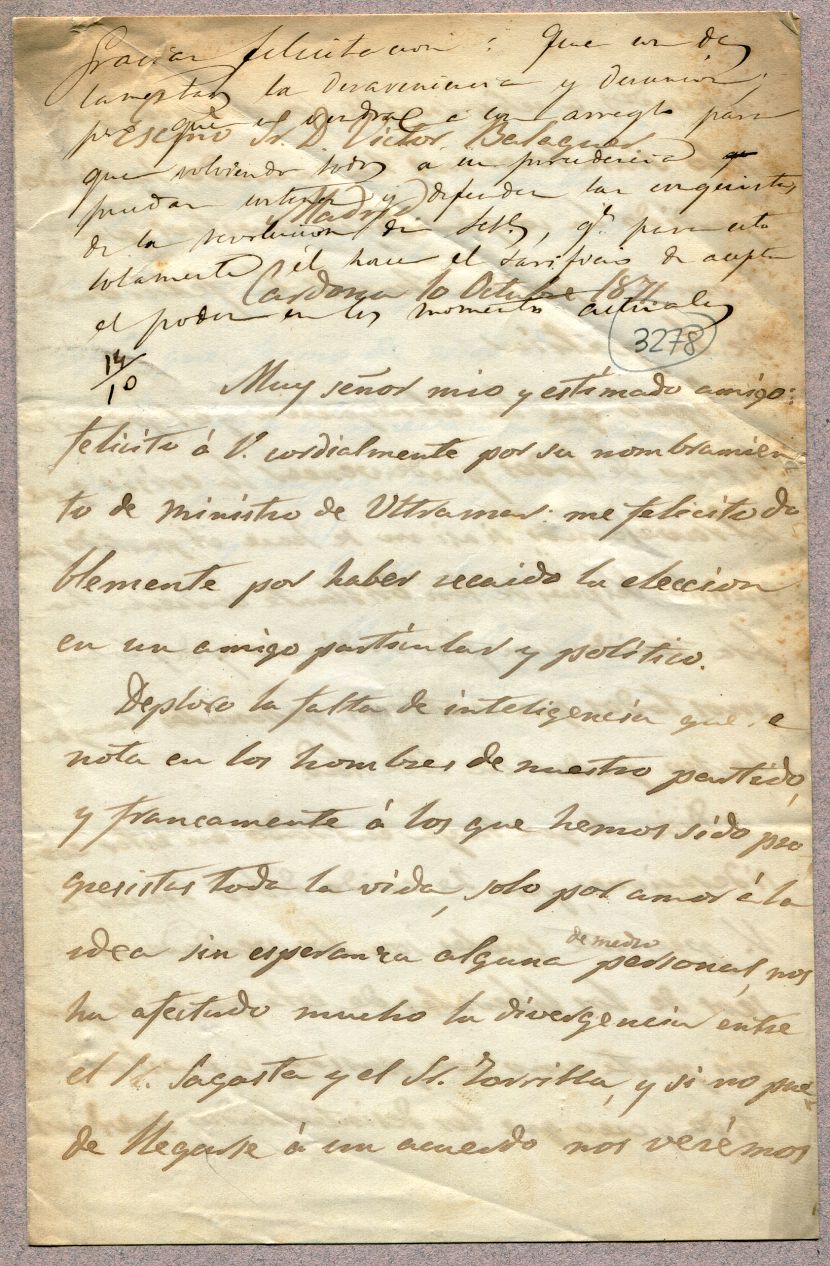 Gracias felicitacion: Que son de
lamentar la desavenencia y desunion,
pero que se vendra a un arreglo para
Escmo Sr. D. Victor Balaguer
que volviendo todos a su procedencia
puedan sostener y defender las conquistas
Madrid
de la revolucion de Setbe, qe para esto
solamente él hace el sacrificio de aceptar
Cardona 10 Octubre 1871
el poder en los momentos actuales
3278
14/10
Muy señor mio y estimado amigo:
felicito á V. cordialmente por su nombramien
to de ministro de Ultramar: me felicito do
blemente por haber recaido la eleccion
en un amigo particular y político.
Deploro la falta de inteligencia que se
nota en los hombres de nuestro partido,
y francamente á los que hemos sido pro
gresistas toda la vida, solo por amor á la
idea sin esperanza alguna de medro personal, nos
ha afectado mucho la divergencia entre
el Sr. Sagasta y el Sr. Zorrilla, y si no pue-
de llegarse á un acuerdo nos verémos